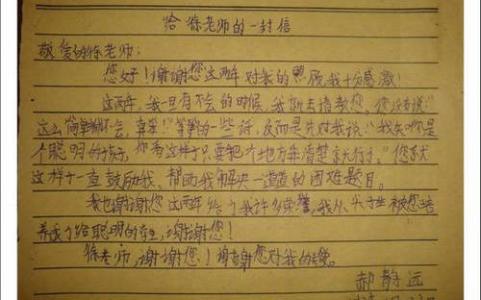 给徐老师的一封信
敬爱的徐老师:
您好!谢谢您这两年对我的照顾,我十分感激!
这两年,我一旦有不会的时候,我就去请教您,您没有说:"
这么简单都不会,真笨!"等等的一些话,反而是片对我说:"我知你是
个聪明的孩子,你看这样子只要把个地方弄清楚就行了。"您就
这样子一直鼓励我、帮助我解决一道道的困难题目。
我也谢谢您这两年给了我许多荣誉,我从
养成了个聪明的 ,谢谢您!
徐老师,谢谢您!谢谢您对我的
郝静远